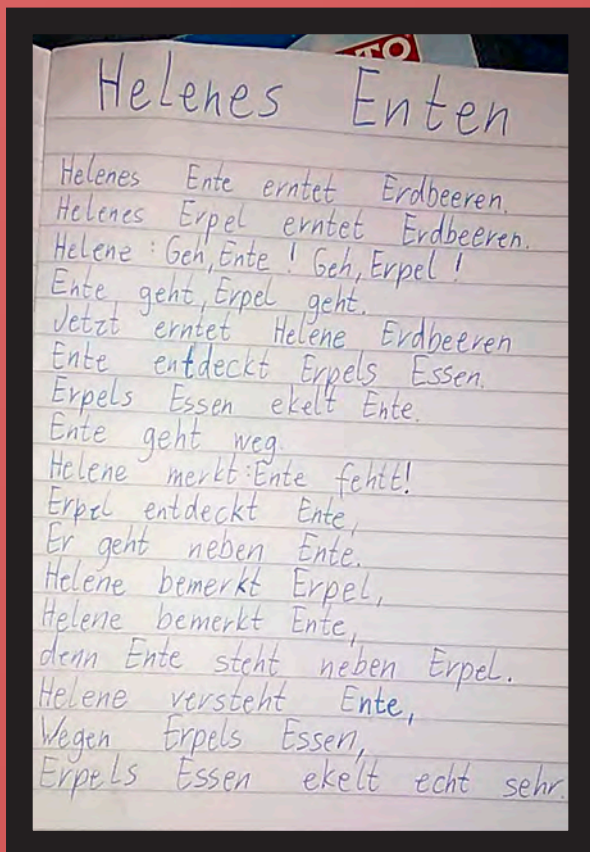 TO
Helenes Enten
Helenes Ente erntet Erdbeeren.
Helenes Erpel erntet Erdbeeren.
Helene: Geh, Ente! Geh, Erpel!
Ente geht, Erpel geht.
Jetzt erntet Helene Erdbeeren
Ente entdeckt Erpels Essen.
Erpels Essen ekelt Ente.
Ente geht weg.
Helene merkt: Ente fehtt!
Erpel entdeckt Ente,
Er geht neben Ente.
Helene bemerkt Erpel,
Helene bemerkt Ente,
denn Ente steht neben Erpel.
Helene versteht Ente,
Wegen Erpels Essen,
Erpels Essen ekelt echt sehr.